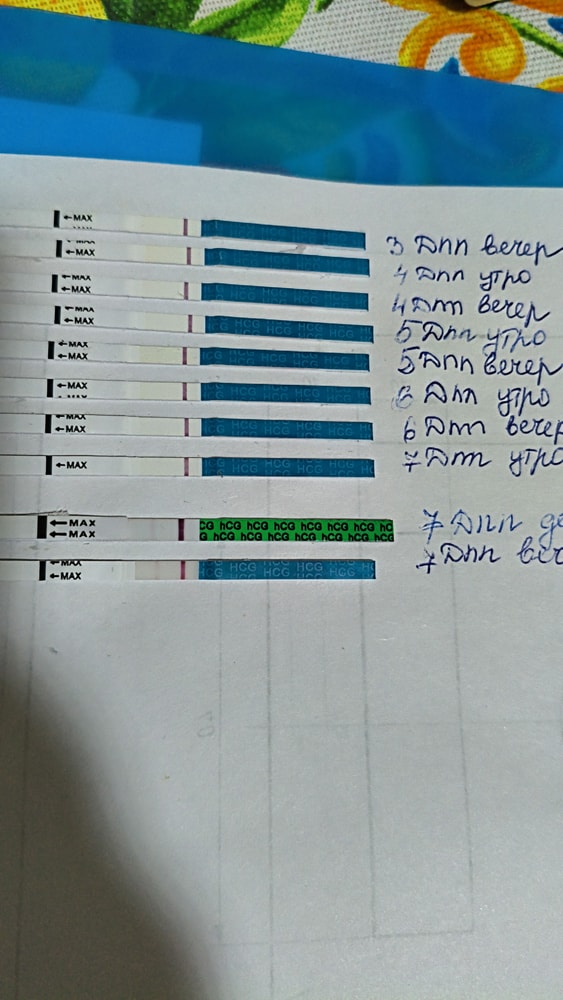 ←MAX 3 Дпп вечер
←MAX 4 Дпп утро
←MAX HCG HCG HCG 4 Дпп вечер
←MAX HCG HCG HCG 5 Дпп утро
←MAX HCG HCG HCG 5 Дпп вечер
←MAX HCG HCG HCG 6 Дпп утро
←MAX HCG HCG HCG 6 Дпп вечер
←MAX HCG HCG HCG 7 Дпп утро
←MAX CG hCG hCG hCG hCG hCG hCG hC 7 Дпп
←MAX G hCG hCG hCG hCG hCG hCG hCG
←MAX HCG HCG HCG 7 Дпп веч